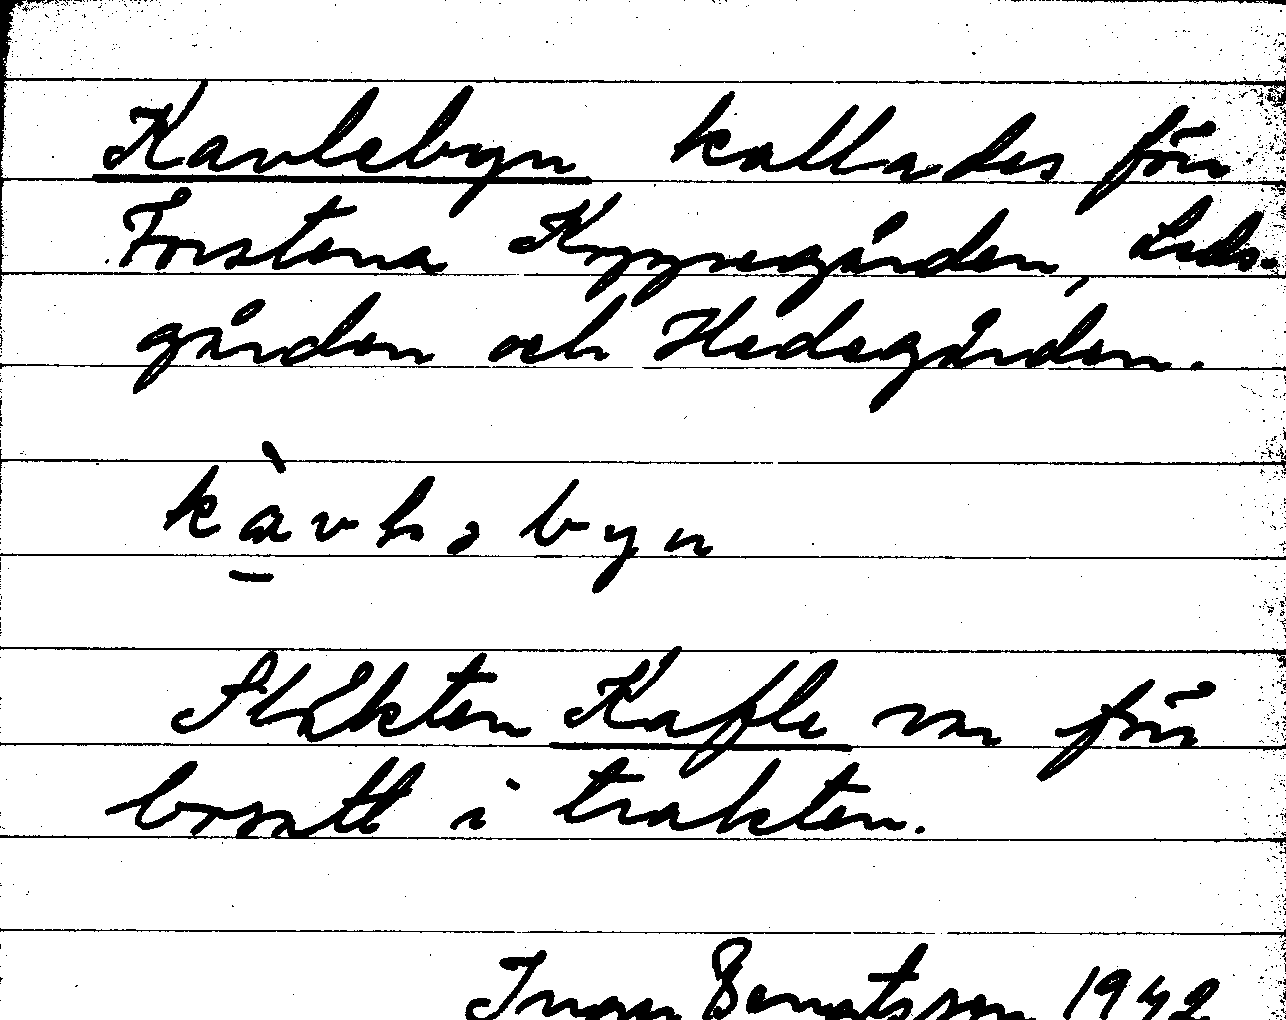 Kavlebyn kallades förr
Forstena Kyrregården, Lids-
gården och Hedegården.
kàvləbyn
Släkten Kafle var förr
bosatt i trakten.
Inger Bengtsson 1942